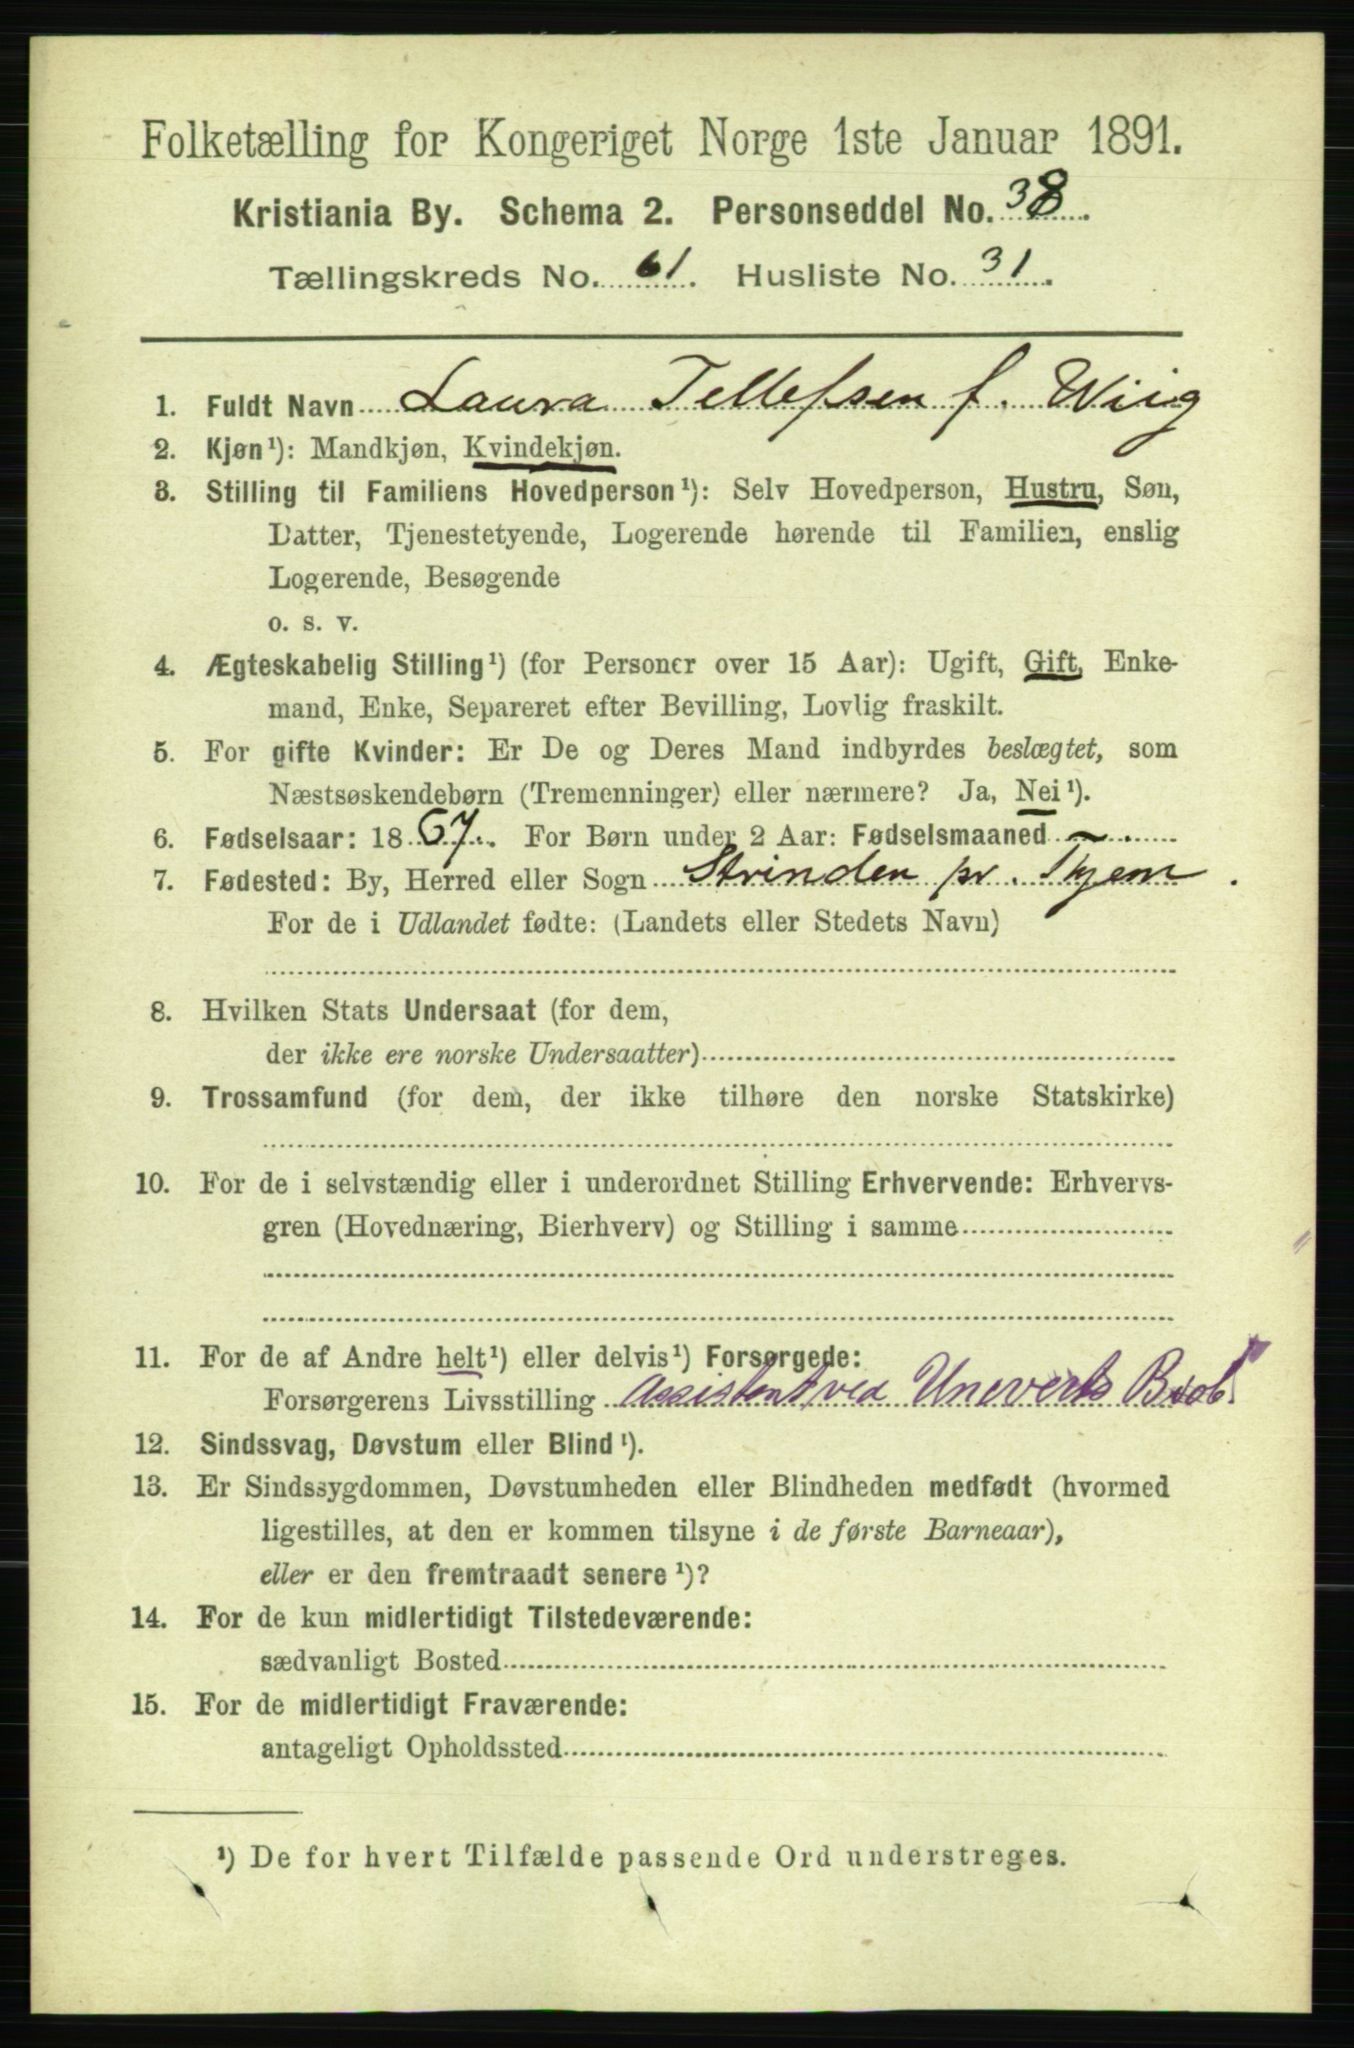 Folketælling for Kongeriget Norge 1ste Januar 1891.
Kristiania By. Schema 2. Personseddel No. 38.
Tællingskreds No. 61. Husliste No. 31.
1. Fuldt Navn Laura Tellefsen f. Wiig
2. Kjøn¹): Mandkjøn, Kvindekjøn.
3. Stilling til Familiens Hovedperson¹): Selv Hovedperson, Hustru, Søn,
Datter, Tjenestetyende, Logerende hørende til Familien, enslig
Logerende, Besøgende
o. s. v.
4. Ægteskabelig Stilling¹) (for Personer over 15 Aar): Ugift, Gift, Enke-
mand, Enke, Separeret efter Bevilling, Lovlig fraskilt.
5. For gifte Kvinder: Er De og Deres Mand indbyrdes beslægtet, som
Næstsøskendebørn (Tremenninger) eller nærmere? Ja, Nei¹).
6. Fødselsaar: 1867. For Børn under 2 Aar: Fødselsmaaned —
7. Fødested: By, Herred eller Sogn Strinden pr. Thjem.
For de i Udlandet fødte: (Landets eller Stedets Navn)
8. Hvilken Stats Undersaat (for dem,
der ikke ere norske Undersaatter)
9. Trossamfund (for dem, der ikke tilhøre den norske Statskirke)
10. For de i selvstændig eller i underordnet Stilling Erhvervende: Erhvervs-
gren (Hovednæring, Bierhverv) og Stilling i samme
11. For de af Andre helt¹) eller delvis¹) Forsørgede:
Forsørgerens Livsstilling Assistent ved
12. Sindssvag, Døvstum eller Blind¹).
13. Er Sindssygdommen, Døvstumheden eller Blindheden medfødt (hvormed
ligestilles, at den er kommen tilsyne i de første Barneaar),
eller er den fremtraadt senere¹)?
14. For de kun midlertidigt Tilstedeværende:
sædvanligt Bosted
15. For de midlertidigt Fraværende:
antageligt Opholdssted
¹) De for hvert Tilfælde passende Ord understreges.